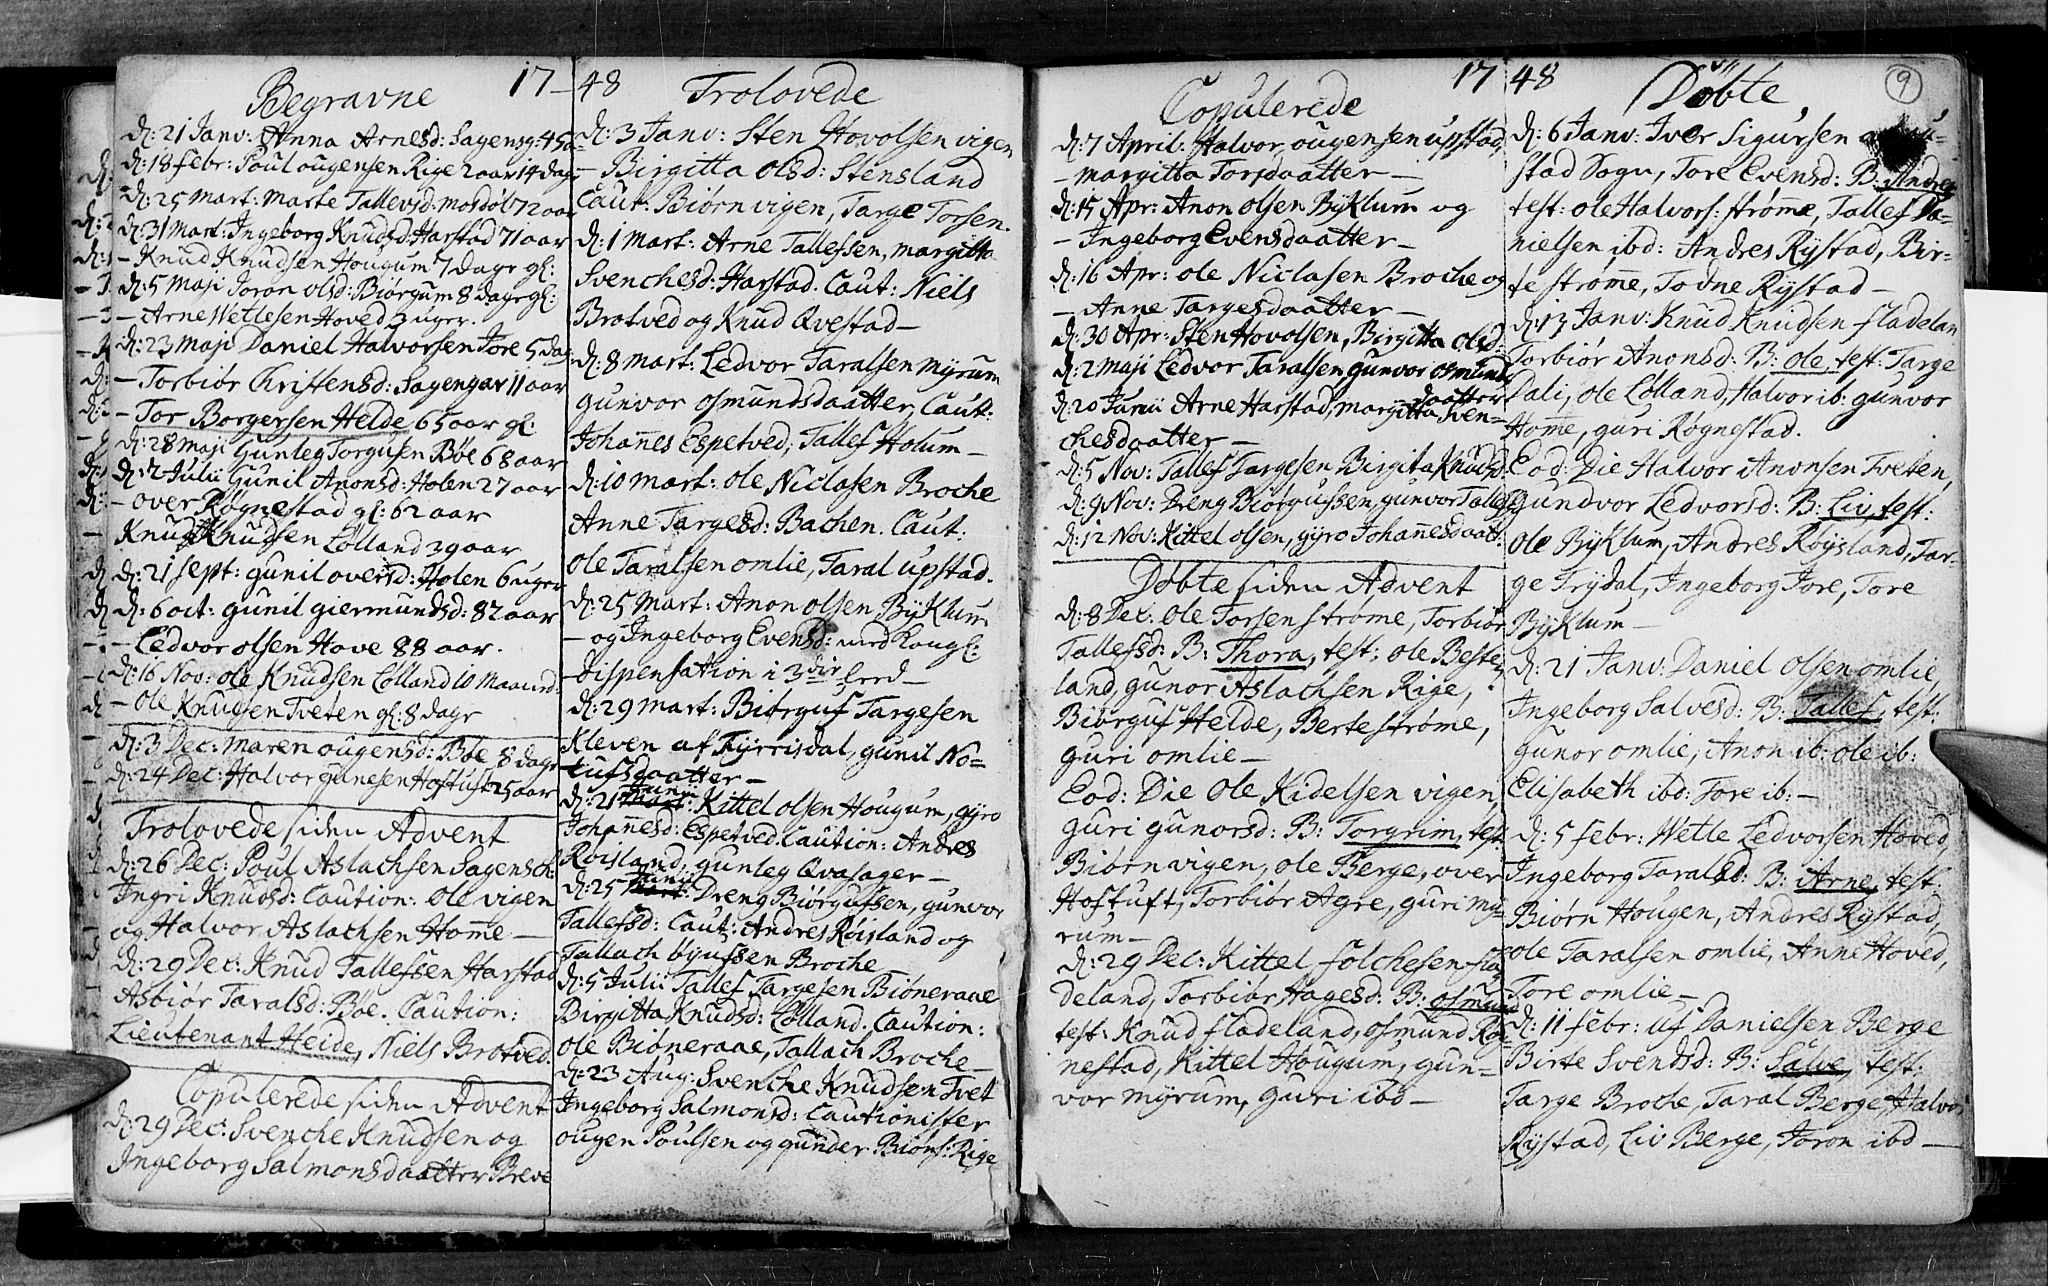 17-48
Begravne
d: 21 Janv: Anna Arnesd: Sageng:
d: 18 febr: Poul ougensen Rige 2 aar 14 dage
d: 25 Mart: Marte Tallevsd: mosdøl 72 aar
d: 31 Mart: Ingeborg Knudsd: Harstad 71 aar
- Knud Knudsen Hougum 7 dage gl:
d: 5 Maji Joron olsd: Biørgum 8 dage gl:
- Arne Wetlesen Hoved 3 uger.
d: 23 Maji Daniel Halvorsen Jore 5 dag
- Torbiør Christensd: Sagengar 11 aar
- Tor Borgersen Helde 65 aar gl:
d: 28 Maji Gunleg Torgusen Bøe 68 aar
d: 2 Julii Gunil Anonsd: Holen 27 aar
- over Røgnestad gl: 62 aar
Knud Knudsen Lølland 39 aar
d: 21 Sept: gunil oversd: Holen 6 uger
d: 6 oct: gunil giermundsd: 82 aar
- Ledvor olsen Hove 88 aar.
d: 16 Nov: ole Knudsen Lølland 10 Maaned:
- Ole Knudsen Tveten gl: 8 dage
d: 3 Dec: maren ougensd: Bøe 8 dage
d: 24 Dec: Halvor gunesen Hoftuft 25 aar
Trolovede siden Advent
d: 26 Dec: Poul Aslachsen Sagensch:
Ingri Knudsd: Caution: ole vigen
og Halvor Aslachsen Homme -
d: 29 Dec: Knud Tallefsen Harstad
Asbiør Taralsd: Bøe. Caution:
Lieutenant Heide, Niels Brotved.
Copulerede siden Advent
d: 29 Dec: Svenche Knudsen og
Ingeborg Salmonsdaatter
Trolovede
d: 3 Janv: Sten Hovolsen vigen
- Birgitta olsd: Stensland
Caut: Biørn vigen, Targe Torsen.
d: 1 Mart: Arne Tallefsen, margitta
Svenchesd: Harstad. Caut: Niels
Brotved og Knud Qvestad -
d: 8 Mart: Ledvor Taralsen Myrum
gunvor osmundsdaatter, Caut:
Johannes Espetved, Tallef Holum -
d: 10 Mart: ole Niclasen Broche
Anne Targesd: Bachen. Caut:
ole Taralsen omlie, Taral upstad.
d: 25 Mart: Anon olsen Byklum
- og Ingeborg Evensd: med Kongl:
dispensation i 3die Leed -
d: 29 Mart: Biørguf Targesen
Kleven af Fyrrisdal, gunil No-
tufsdaatter -
d: 21 Junii Kittel olsen Hougum, gyro
Johannesd: Espetved. Caution: Andres
Røisland, gunleg Qvasager -
d: 25 Junii Dreng Biørgufsen, gunvor
Tallefsd: Caut: Andres Røisland og
Tallach Byufsen Broche
d: 5 Julii Tallef Targesen Biøneraae
Birgitta Knudsd: Lølland. Caution:
ole Biøneraae, Tallach Broche -
d: 23 Aug: Svenche Knudsen Tvet
Ingeborg Salmonsd: Cautionister
ougen Poulsen og gunder Biøns: Rige
17 48
9
Copulerede
d: 7 April: Halvor ougensen upstad,
- margitta Torsdaatter -
d: 15 Apr: Anon olsen Byklum og
- Ingeborg Evensdaatter -
d: 16 Apr: ole Niclasen Broche og
- Anne Targesdaatter -
d: 30 Apr: Sten Hovolsen, Birgitta olsd:
d: 2 Maji Ledvor Taralsen, gunvor osmunds
daatter
d: 20 Junii Arne Harstad, margitta Sven-
chesdaatter -
d: 5 Nov: Tallef Targesen Birgita Knudsd:
d: 9 Nov: Dreng Biørgufsen, gunvor Tallefs
d: 12 Nov: Kittel olsen, gyro Johannesdaat:
Døbte siden Advent
d: 8 Dec: ole Torsen strøme, Torbiør
Tallefsd: B: Thora, test: ole Besте-
land, gunor Aslachsen Rige,
Biørguf Helde, Berte strøme,
guri omlie -
Eod: Die Ole Kidelsen vigen,
guri gunorsd: B: Torgrim, test:
Biørn vigen, ole Berge, over
Hoftuft, Torbiør Agre, guri my-
rum -
d: 29 Dec: Kittel folchesen fla-
deland, Torbiør Hagesd: B: osmund
test: Knud fladeland, osmund Røg-
nestad, Kittel Hougum, gun-
vor myrum, guri ibd -
Døbte
d: 6 Janv: Iver Sigursen
stad Sogn, Tore Evensd: B: Andres
test: ole Halvors: strøme, Tallef Da-
nielsen ibd: Andres Rystad, Bir-
te strøme, Todne Rystad -
d: 13 Janv: Knud Knudsen fladelan
Torbiør Anonsd: B: ole, test: Targe
Dali, ole Lølland, Halvor ib: gunvor
Home, guri Røgnestad.
Eod: Die Halvor Anonsen Tveten,
gundvor Ledvorsd: B: Liv, test:
ole Byklum, Andres Røysland, Tar-
ge Frydal, Ingeborg Jore, Tore
Byklum -
d: 21 Janv: Daniel olsen omlie,
Ingeborg Salvesd: B: Tallef, test:
gunor omlie, Anon ib: ole ib:
Elisabeth ibd: Tore ib: -
d: 5 febr: Wetle Ledvorsen Hoved,
Ingeborg Taralsd: B: Arne, test:
Biørn Hougen, Andres Rystad,
ole Taralsen omlie, Anne Hoved,
Tore omlie -
d: 11 febr: uf Danielsen Berge
Birte Svendsd: B: Salve, test:
Targe Broche, Taral Berge, Halvor
Rystad, Liv Berge, Joron ibd -